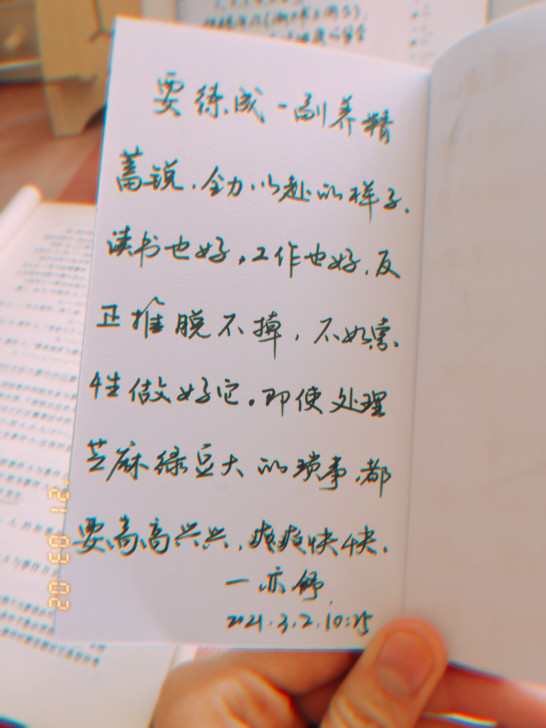 要练成一副养精
蓄锐，全力以赴的样子，
读书也好，工作也好，反
正推脱不掉，不如索
性做好它。即使处理
芝麻绿豆大的琐事，都
要高高兴兴，爽爽快快。
—亦舒
2021.3.2.10:25
'21 03 02